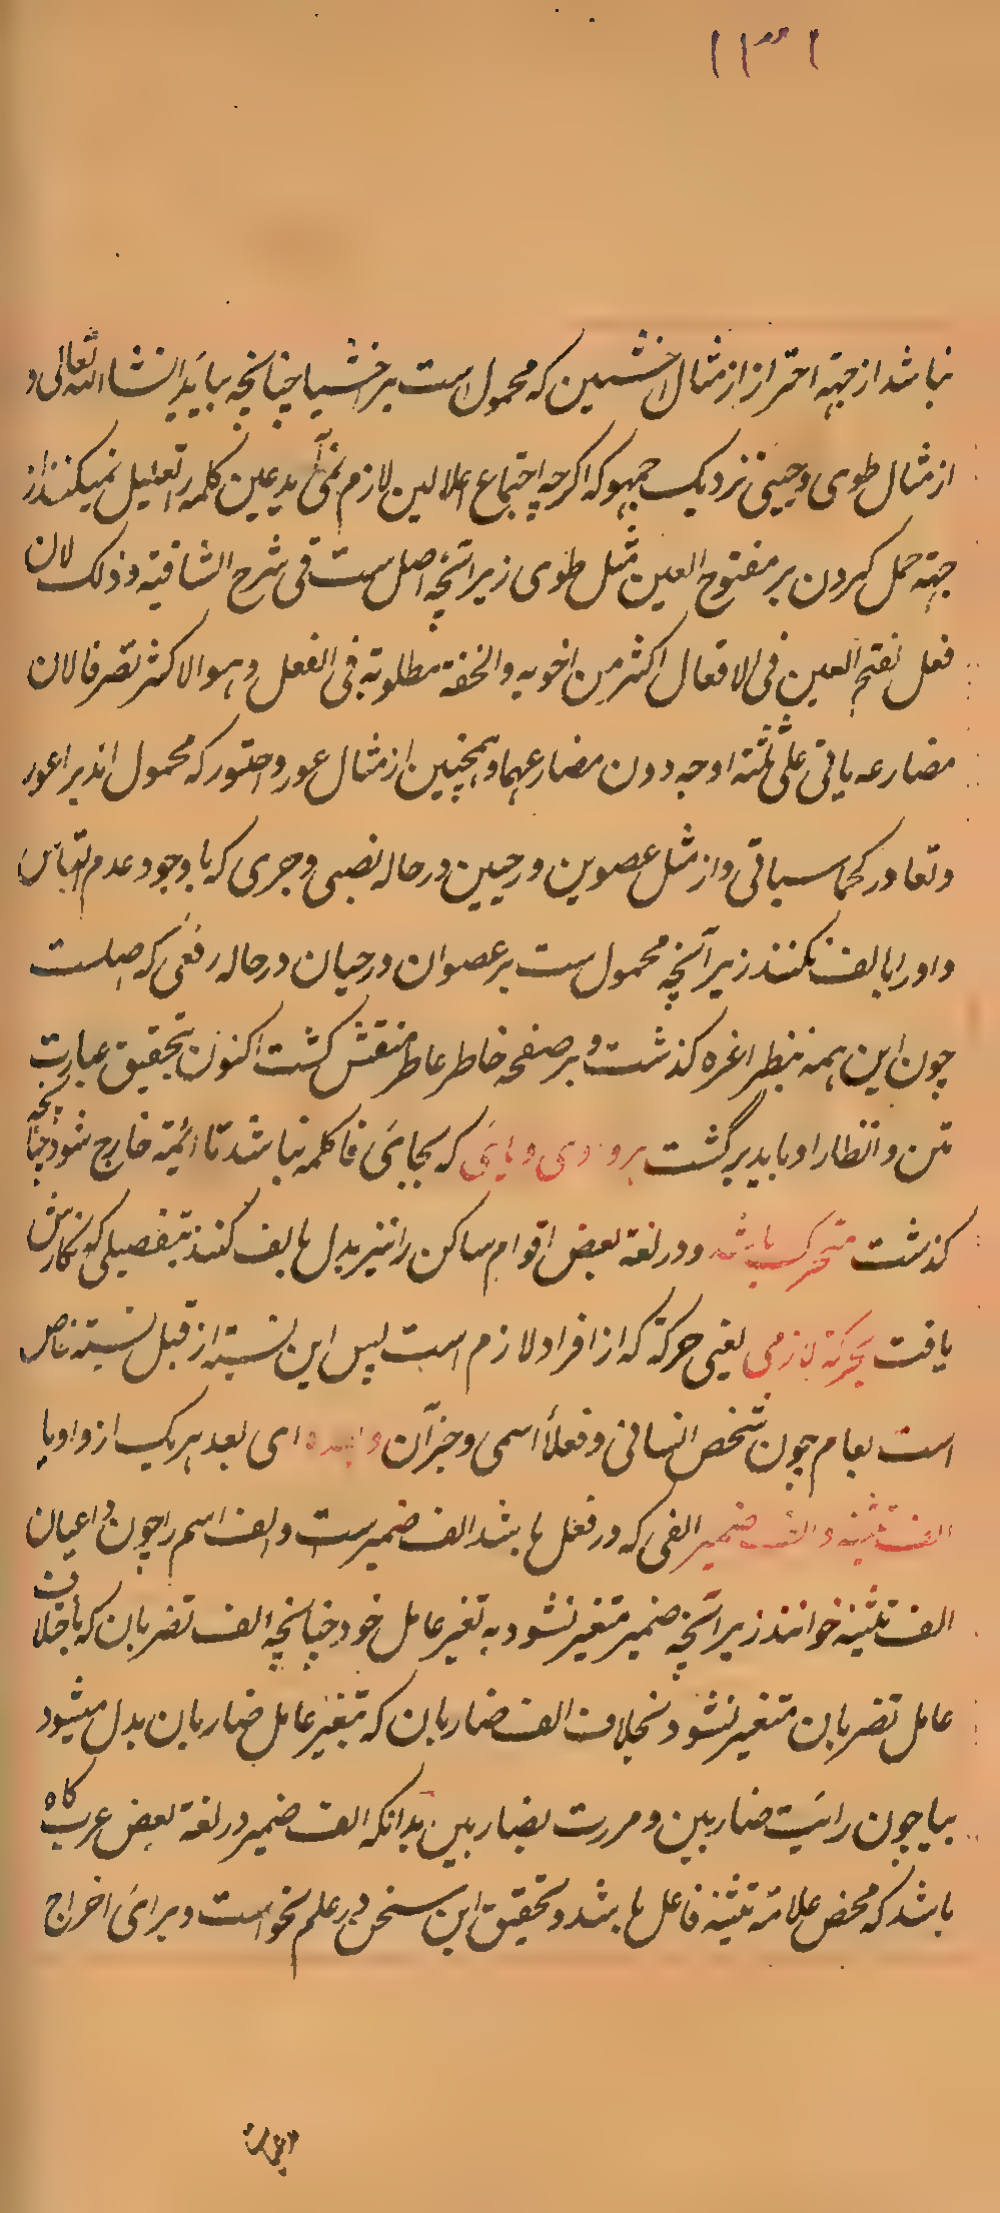 ۱۳۱
نباشد از جهته احتراز از مثال اخشیین که محمول است بر اخشیا چنانچه بیاید انشاالله تعالی و
از مثال طوی و حیی نزدیک جمهو که اکرچه اجتماع اعلالین لازم نمی آید عین کلمه را تعلیل نمیکنند از
جهته حمل کردن بر مفتوح العین مثل طوی زیرا آنچه اصل ست فی شرح الشافیة و ذلک لان
فعل بفتح العین فی الافعال اکثر من اخویه و الخفة مطلوبة فی الفعل و هو الاکثر تصرفا لان
مضارعه یاتی علی ثلثة اوجه دون مضارعهما و همچنین از مثال عور و اعتور که محمول اند بر اعور
و تعاور کما سیاتی و از مثل عصوین و رحیین در حاله نصبی و جری که با وجود عدم التباس
واو را با الف نکنند زیرا آنچه محمول ست بر عصوان و رحیان در حاله رفعی که اصلست
چون این همه بنظر اغره کذشت و بر صفحه خاطر عاطر منتقش کشت اکنون بتحقیق عبارت
متن و انتظار او باید برگشت هر واوی و یای که بجای فا کلمه نباشد تا ائمة خارج شود چنانچه
کذشت متحرک باشد و در لغة بعض اقوام ساکن را نیز بدل بالف کنند بتفصیلی که نکارش
یافت بحرکة لازمی یعنی حرکة که از افراد لازم است پس این نسبته از قبل نسبته خاص
است بعام چون شخص انسانی و فعلا اسمی و جز آن و بعده ای بعد هر یک از واو یا
الف تثنیه و الف ضمیر الفی که در فعل باشد الف ضمیر ست و الف اسم را چون داعیان
الف تثنیه خوانند زیرا آنچه ضمیر متغیر نشود به تغیر عامل خود چنانچه الف تضربان که باختلاف
عامل تضربان متغیر نشود بخلاف الف ضاربان که بتغیر عامل ضاربان بدل میشود
بیا چون رائیت ضاربین و مررت بضاربین بدانکه الف ضمیر در لغة بعض عرب کاه
باشد که محض علامة تثنیه فاعل باشد و تحقیق این سخن در علم نحو است و برای اخراج